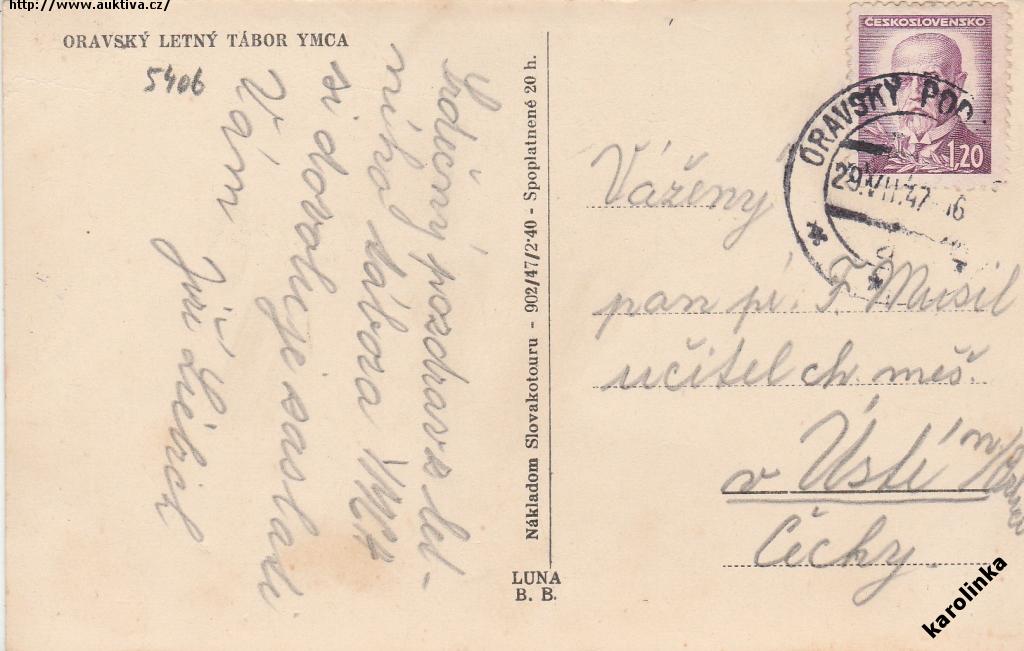 http://www.auktiva.cz/
ORAVSKÝ LETNÝ TÁBOR YMCA
5406
Srdečný pozdrav z let-
ního tábora YMCA
si dovoluje zaslati
Vám
Jiří
Nákladom Slovakotouru - 902/47/2·40 - Spoplatnené 20 h.
LUNA
B. B.
ČESKOSLOVENSKO
1,20
ORAVSKÝ POD.
29.VII.47-16
Vážený
pan př. F. Musil
učitel ch. měš.
v Ústí n/
Čechy.
karolinka